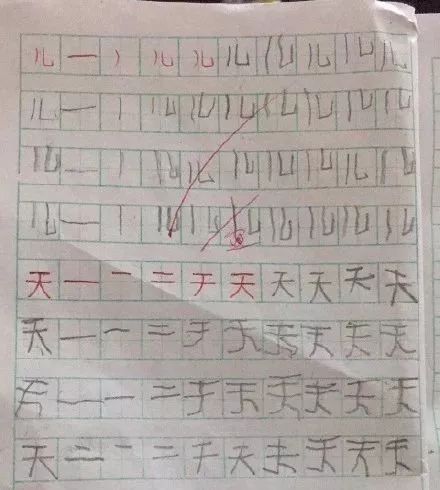 儿 一 丿 儿 儿 儿 儿 儿 儿 儿
儿 一 丿 儿 儿 儿 儿 儿 儿 儿
儿 一 丿 儿 儿 儿 儿 儿 儿 儿
儿 一 丿 儿 儿 儿 儿 儿 儿 儿
天 一 一 二 于 天 天 天 天 天
天 一 一 二 于 天 天 天 天 天
天 一 一 二 于 天 天 天 天 天
天 二 一 二 于 天 天 天 天 天